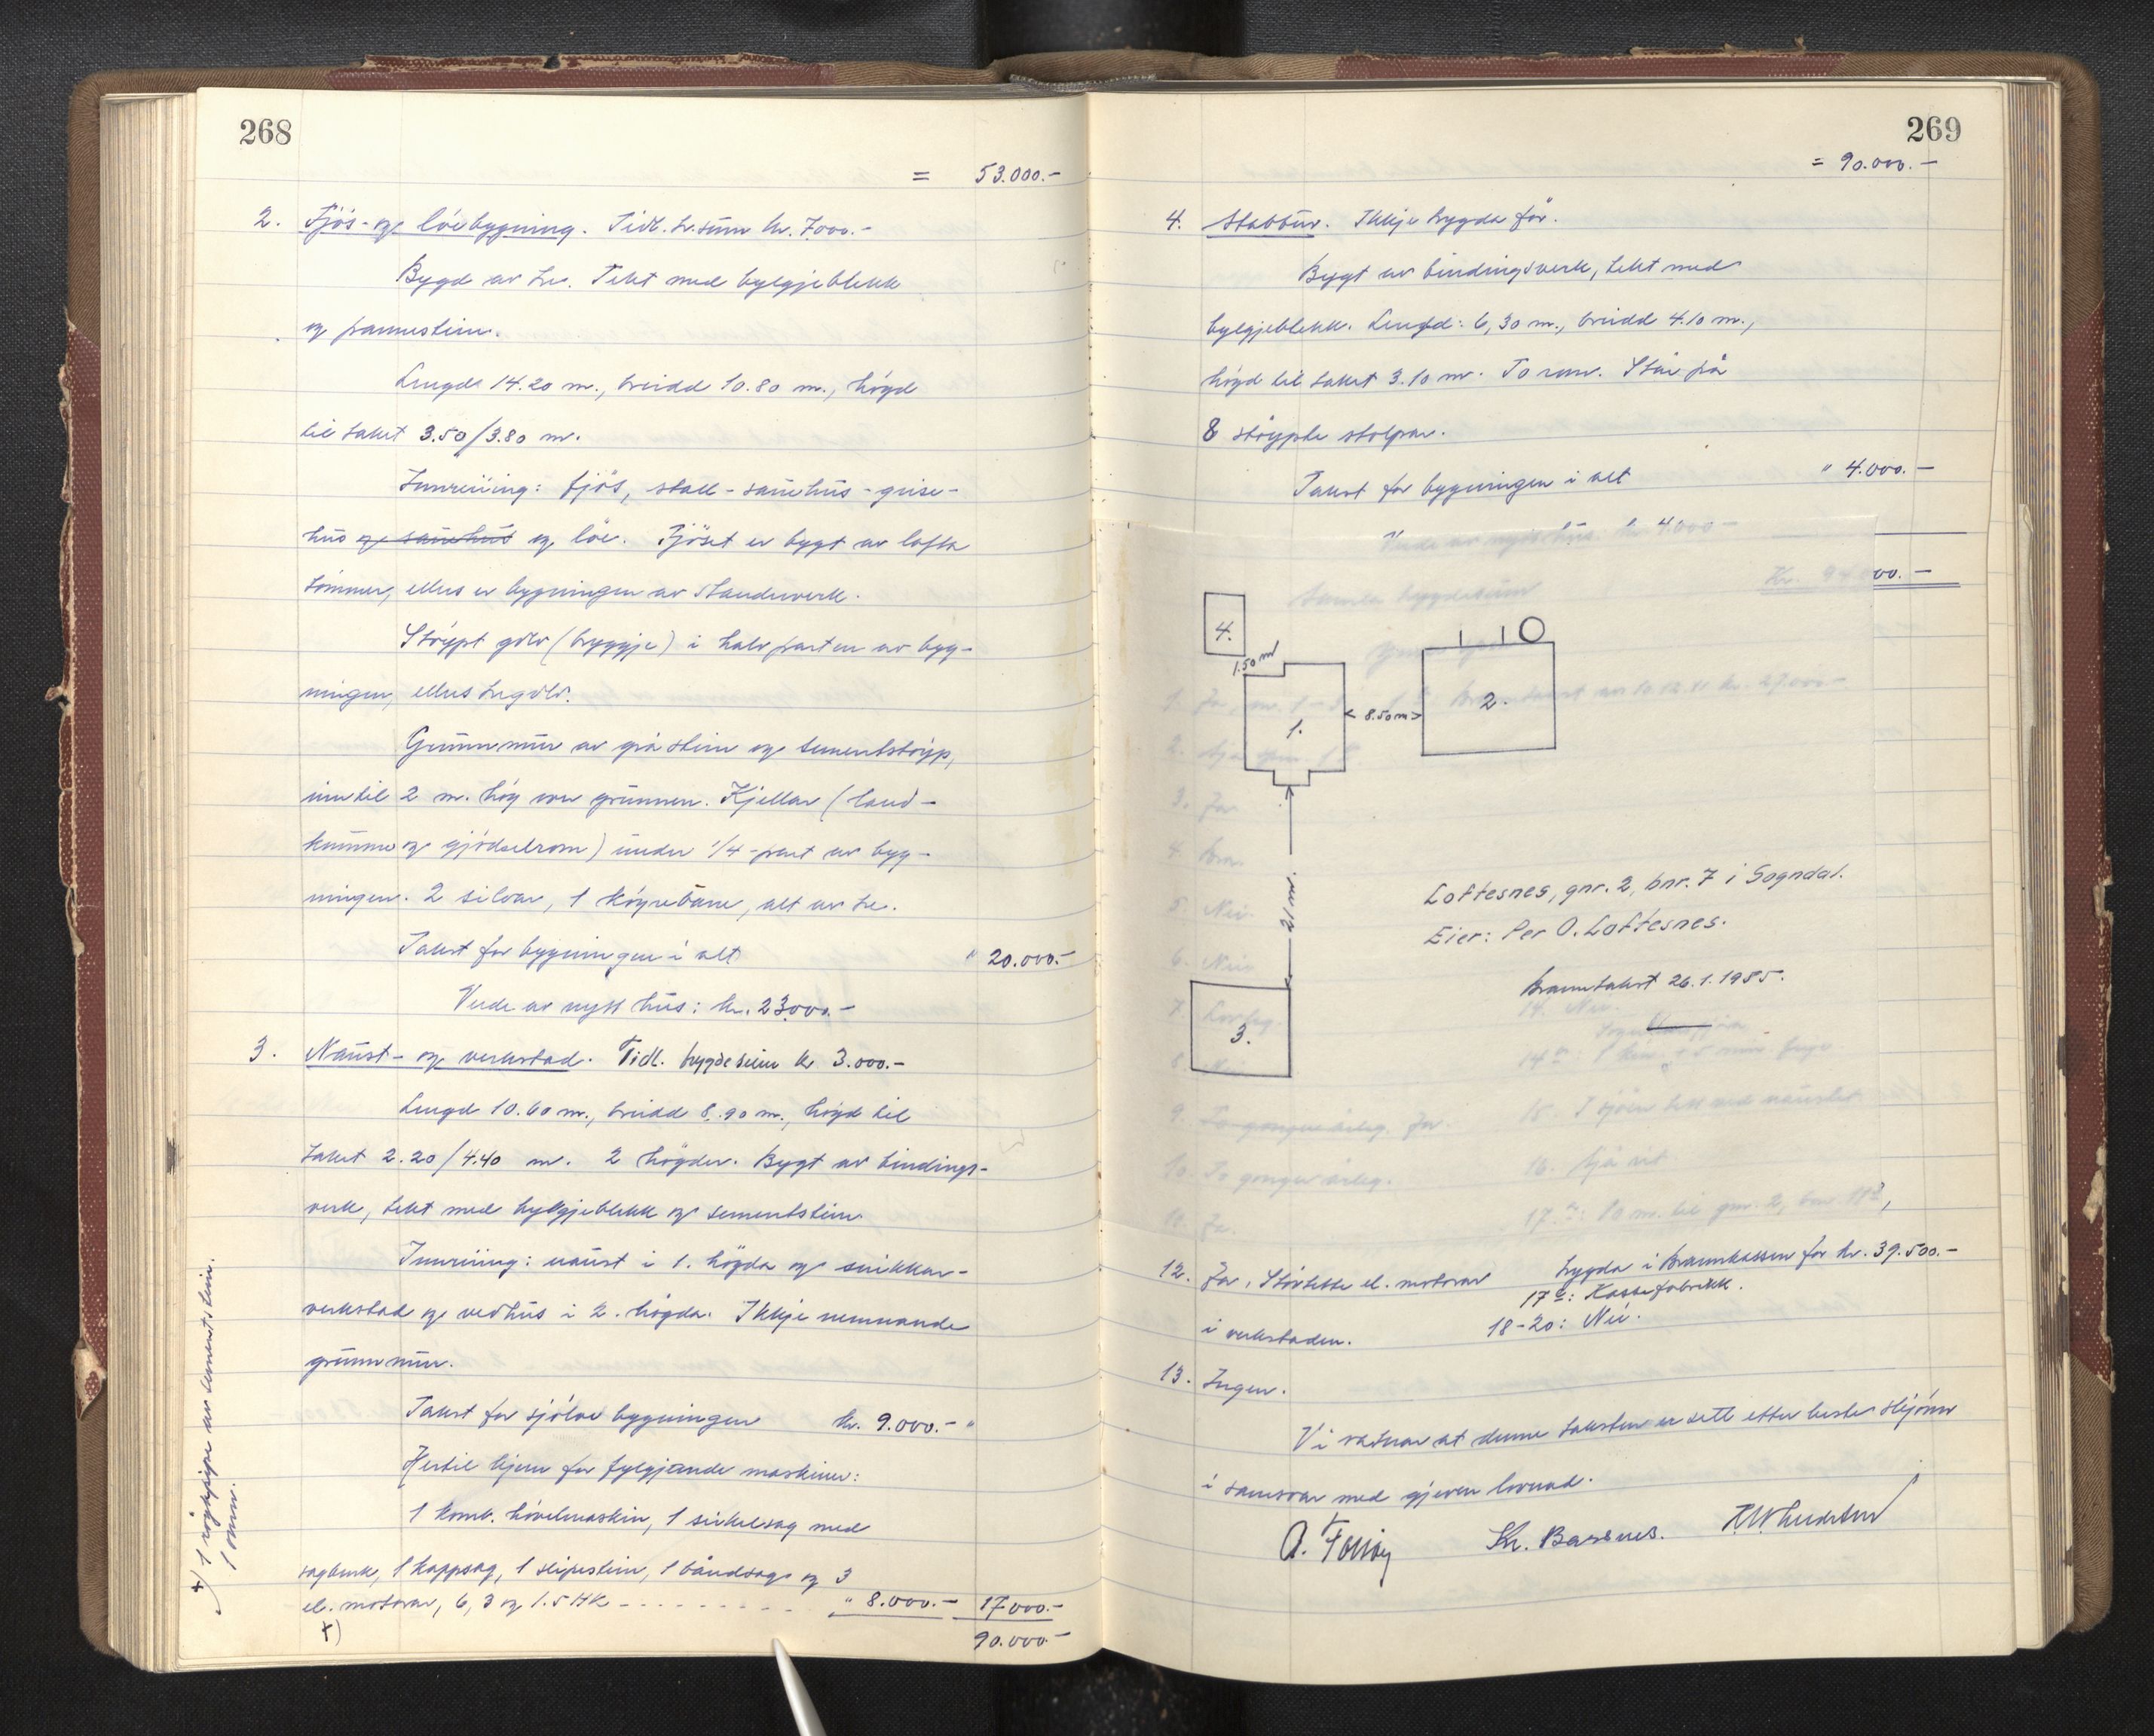 268
= 53.000.-
2. Fjös- og löebygning. Tidl. br.sum kr. 7.000.-
Bygd av tre. Tekt med bylgjeblekk
og pannestein.
Lengde 14.20 m., breidd 10.80 m., högd
til taket 3.50/3.80 m.
Innreiing: fjös, stall - sauehus - grise-
hus og sauehus og löe. Fjöset er bygt av lafta
tömmer, elles er bygningen av standerverk.
Stöypt golv (bryggje) i halvparten av byg-
ningen, elles tregolv.
Grunnmur av gråstein og sementstöyp,
inntil 2 m. hög over grunnen. Kjellar (land-
kumme og gjödselrom) under 1/4-part av byg-
ningen. 2 siloar, 1 köyrebane, alt av tre.
Takst for bygningen i alt " 20.000.-
Verde av nytt hus: kr. 23.000.-
3. Naust- og verkstad. Tidl. brygdesum kr 3.000.-
Lengd 10.60 m., breidd 8.90 m., högd til
taket 2.20/4.40 m. 2 högder. Bygt av bindings-
verk, tekt med bylgjeblekk og sementstein.
Innreiing: naust i 1. högda og snikkar-
verkstad og vedhus i 2. högda. Ikkje nemnande
grunnmur.
Takst for sjölve bygningen kr. 9.000.- "
Hertil kjem for fylgjande maskiner:
1 komb. hövelmaskin, 1 sirkelsag med
sagbenk, 1 kappsag, 1 slipestein, 1 båndsag og 3
el. motorar, 6, 3 og 1.5 HK - - - - - - - - " 8.000.- 17000.-
+) 90.000.-
+) 1 röykpipe av sementstein.
1 omn.
269
= 90.000.-
4. Stabbur. Ikkje trygda för.
Bygt av bindingsverk, tekt med
bylgjeblekk. Lengd: 6,30 m., breidd 4.10 m.,
högd til taket 3.10 m. To rom. Står på
8 stöypte stolpar.
Takst for bygningen i alt " 4.000.-
Verde av nytt hus: kr 4.000-
00.-
4.
1.50 m
1.
8.50 m
2.
21 m.
3.
Loftesnes, gnr. 2, bnr. 7 i Sogndal.
Eier: Per O. Loftesnes.
Branntakst 26.1.1955.
9. To gonger årleg. Ja.
10. To gonger årleg.
11. Ja.
16. Sjå rit.
17. 80 m. til gnr. 2, bnr.
12. Ja, Störtette el. motorar
i verkstaden.
trygda i Brannkassen for kr. 39.500.-
17: Kassefabrikk.
18-20: Nei.
13. Ingen.
Vi vatnar at denne taksten er sett etter beste skjönn
i samsvar med gjeven lovnad.
Kr. Barsnes.